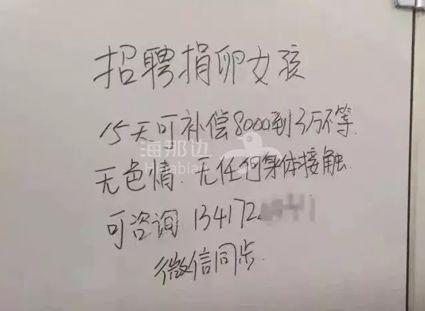 招聘捐卵女孩
15天可补偿8000到3万不等
无色情.无任何身体接触
海那边
可咨询 134172
微信同步.